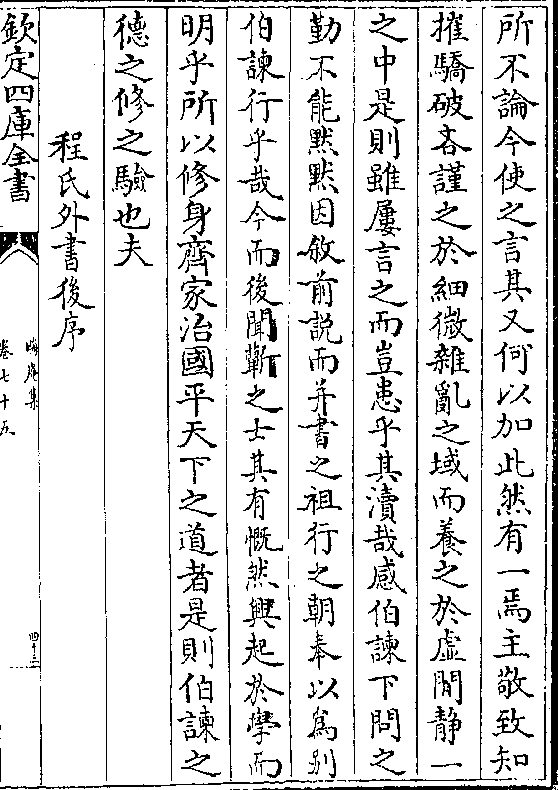 所不論今使之言其又何以加此然有一焉主敬致知
摧驕破吝謹之於細微雜亂之域而養之於虛閒靜一
之中是則雖屢言之而豈患乎其瀆哉感伯諫下問之
勤不能默默因敘前說而并書之祖行之朝奉以為别
伯諫行乎哉今而後聞蘄之士其有慨然興起於學而
明乎所以修身齊家治國平天下之道者是則伯諫之
德之修之驗也夫
程氏外書後序
欽定四庫全書
晦庵集
卷七十五
四十三